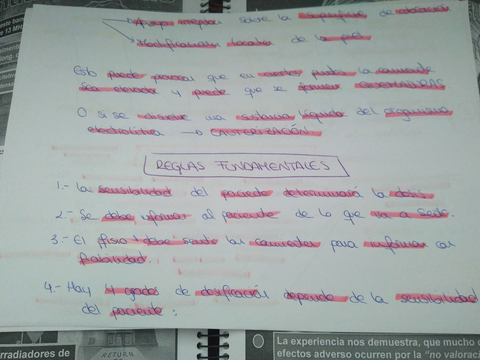 sobre la superficie de
Modificación local de la piel
Esto puede provocar que en ciertos puntos la corriente
sea elevada y puede que se formen
O si se disuelve una sustancia líquida del organismo
electrolítica → CAUTERIZACIÓN
REGLAS FUNDAMENTALES
1.- La sensibilidad del paciente determinará la dosis
2.- Se debe informar al paciente de lo que va a sentir.
3.- El fisio debe sentir las corrientes para informar
fiabilidad.
4.- Hay 4 grados de dosificación depende de la sensibilidad
del paciente:
rradiadores de
RETURN
La experiencia nos demuestra, que mucho
efectos adverso ocurren por la "no valorac